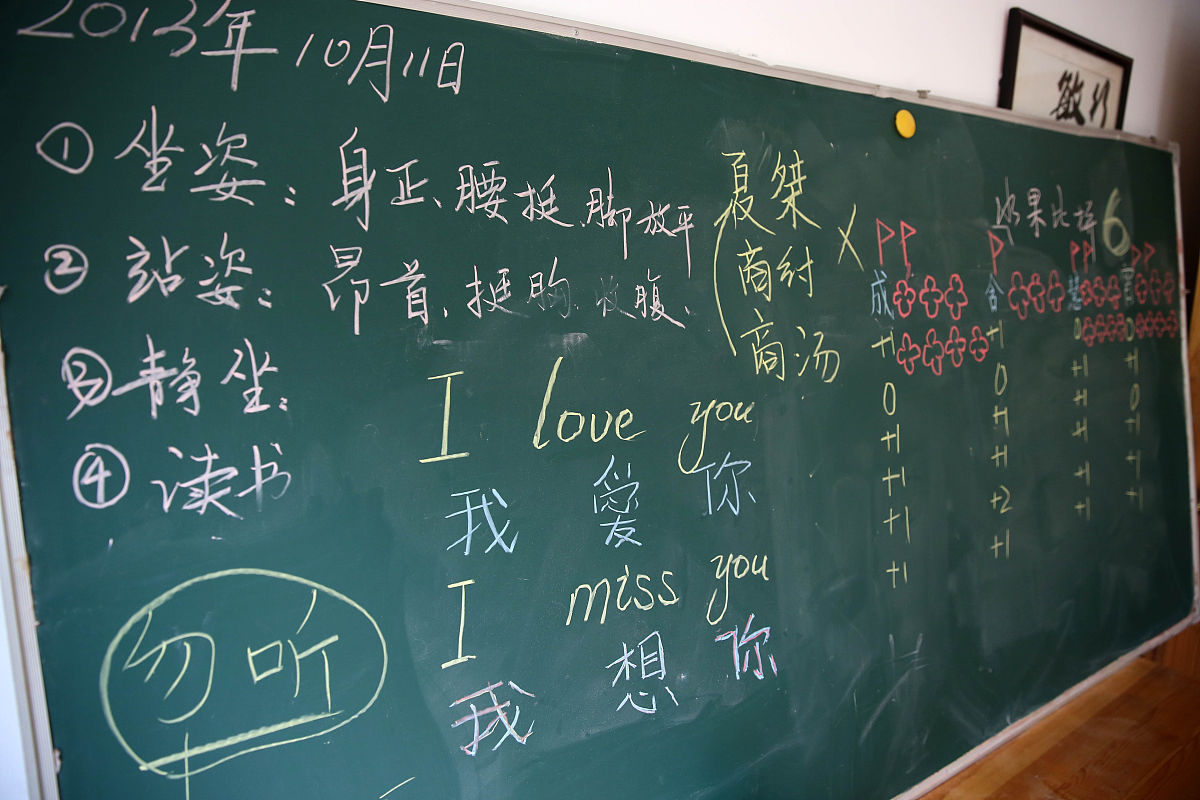 2013年10月11日
① 坐姿：身正、腰挺、脚放平
② 站姿：昂首、挺胸、收腹、
③ 静坐：
④ 读书
勿听
夏桀
商纣 X
商汤
I love you
我 爱 你
I miss you
我 想 你
6
PP P PP PP
成 舍 慧
+1 +1 0 0
0 0 +1 +1
+1 +1 +1 0
+1 +1 +1 +1
+1 +2 +1 +1
+1 +1 +1 +1
敏行